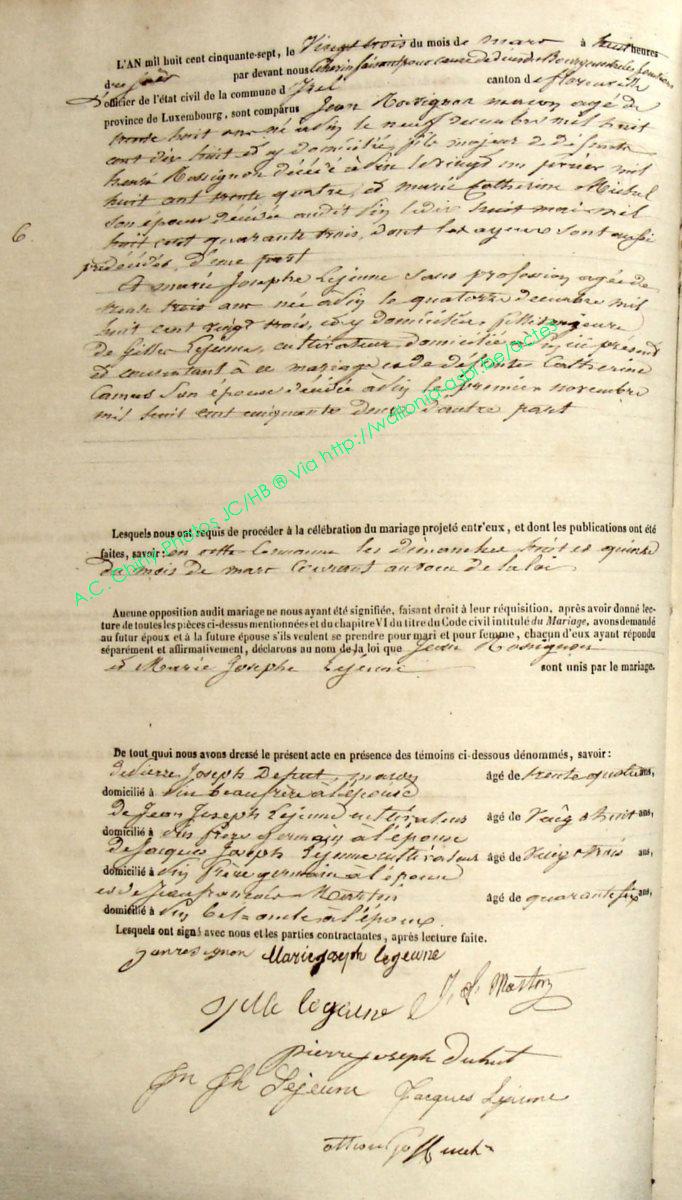 L'AN mil huit cent cinquante-sept, le Vingt trois du mois de mars à huit heures
du par devant nous
officier de l'état civil de la commune d canton de florenville
province de Luxembourg, sont comparus Jean Rossignon maçon agé de
trente huit ans né à le neuf decembre mil huit
cent dix huit et y domicilié, fils majeur de défunts
Rossignon décédé à le vingt un mil
huit cent trente quatre, et marie Catherine Michel
son épouse décédée audit le dix huit mai mil
huit cent quarante trois, dont les ayeux sont aussi
6.
prédécédés, d'une part
Et marie Josephe Lejeune sans profession agée de
trente trois ans née à le quatorze decembre mil
huit cent vingt trois, et y domiciliée, fille majeure
de Lejeune, cultivateur domicilié présent
et consentant à ce mariage et de défunte Catherine
Camus son épouse décédée à le premier novembre
mil huit cent cinquante d'autre part
Lesquels nous ont requis de procéder à la célébration du mariage projeté entr'eux, et dont les publications ont été
faites, savoir: en cette Commune les dimanches huit et quinze
du mois de mars Courant au vœu de la loi
Aucune opposition audit mariage ne nous ayant été signifiée, faisant droit à leur réquisition, après avoir donné lec-
ture de toutes les pièces ci-dessus mentionnées et du chapitre VI du titre du Code civil intitulé du Mariage, avons demandé
au futur époux et à la future épouse s'ils veulent se prendre pour mari et pour femme, chacun d'eux ayant répondu
séparément et affirmativement, déclarons au nom de la loi que Jean Rossignon
et Marie Josephe Lejeune sont unis par le mariage.
De tout quoi nous avons dressé le présent acte en présence des témoins ci-dessous dénommés, savoir:
de Pierre Joseph maçon âgé de trente quatre ans,
domicilié à beau frère à l'épouse
de Jean Joseph Lejeune cultivateur âgé de Vingt huit ans,
domicilié à frère germain à l'épouse
de Jacques Joseph Lejeune cultivateur âgé de Vingt trois ans,
domicilié à frère germain à l'épouse
et de Jean françois Martin âgé de quarante six ans,
domicilié à bel oncle à l'époux.
Lesquels ont signé avec nous et les parties contractantes, après lecture faite.
Marie joseph legeune
legeune J. f. Martin
pierre joseph
Jn Jh Lejeune Jacques Lejeune
A.C. Chiny Photos JC/HB ® Via http://wallonia-asbl.be/actes